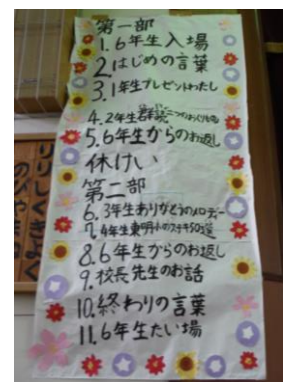 第一部
1.6年生入場
2.はじめの言葉
3.1年生プレゼントわたし
4.2年生群読
5.6年生からのお返し
休けい
第二部
6.3年生ありがとうのメロディー
7.4年生東明小のステキ
8.6年生からのお返し
9.校長先生のお話
10.終わりの言葉
11.6年生たい場
りりしくきよく
のびやかに